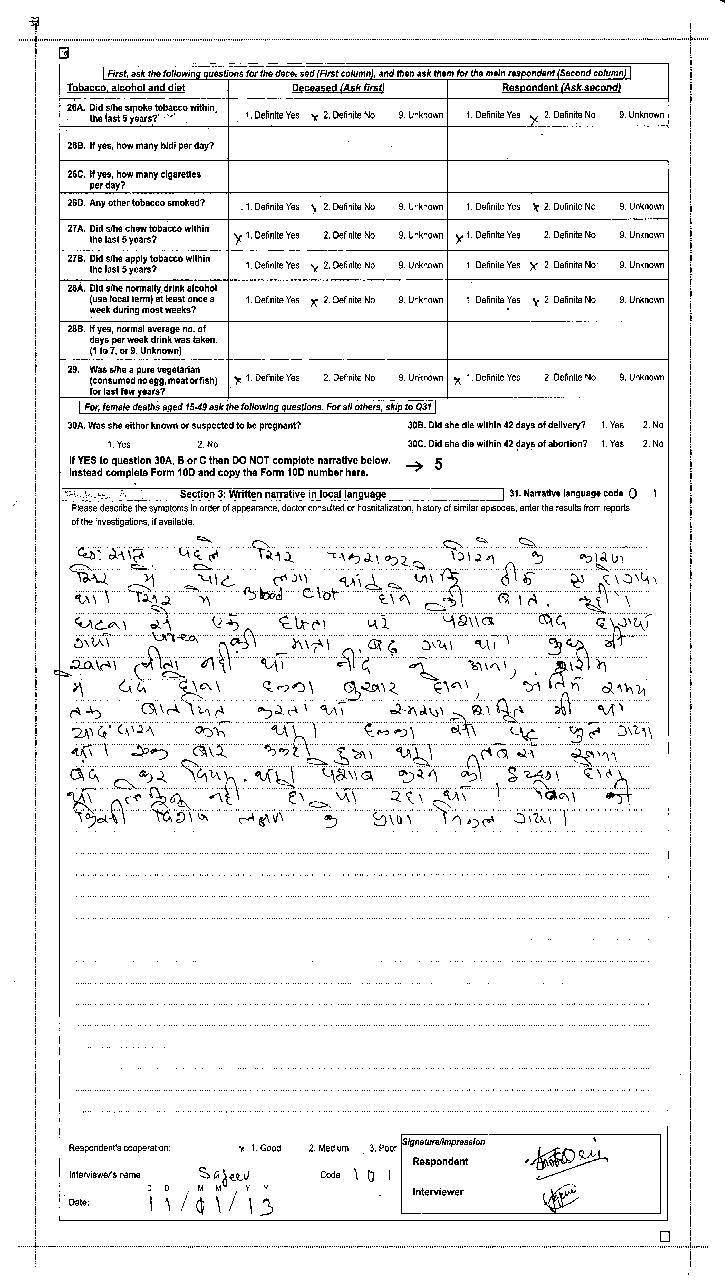 First, ask the following questions for the deceased (First column), and then ask them for the main respondent (Second column)
Tobacco, alcohol and diet Deceased (Ask first) Respondent (Ask second)
26A. Did s/he smoke tobacco within the last 5 years? 1. Definite Yes x 2. Definite No 9. Unknown 1. Definite Yes x 2. Definite No 9. Unknown
26B. If yes, how many bidi per day?
26C. If yes, how many cigarettes per day?
26D. Any other tobacco smoked? 1. Definite Yes x 2. Definite No 9. Unknown 1. Definite Yes x 2. Definite No 9. Unknown
27A. Did s/he chew tobacco within the last 5 years? x 1. Definite Yes 2. Definite No 9. Unknown x 1. Definite Yes 2. Definite No 9. Unknown
27B. Did s/he apply tobacco within the last 5 years? 1. Definite Yes x 2. Definite No 9. Unknown 1. Definite Yes x 2. Definite No 9. Unknown
28A. Did s/he normally drink alcohol (use local term) at least once a week during most weeks? 1. Definite Yes x 2. Definite No 9. Unknown 1. Definite Yes x 2. Definite No 9. Unknown
28B. If yes, normal average no. of days per week drink was taken. (1 to 7, or 9. Unknown)
29. Was s/he a pure vegetarian (consumed no egg, meat or fish) for last few years? x 1. Definite Yes 2. Definite No 9. Unknown x 1. Definite Yes 2. Definite No 9. Unknown
For, female deaths aged 15-49 ask the following questions. For all others, skip to Q31
30A. Was she either known or suspected to be pregnant? 30B. Did she die within 42 days of delivery? 1. Yes 2. No
1. Yes 2. No 30C. Did she die within 42 days of abortion? 1. Yes 2. No
If YES to question 30A, B or C then DO NOT complete narrative below.
Instead complete Form 10D and copy the Form 10D number here. → 5
Section 3: Written narrative in local language 31. Narrative language code 0 1
Please describe the symptoms in order of appearance, doctor consulted or hospitalization, history of similar episodes, enter the results from reports
of the investigations, if available.
छः साल पहले सिर चकराकर गिरने के कारण
सिर में चोट लगा था। जोकि ठीक हो गया
था। सिर में Blood Clot होने की बात कही।
घटना से एक हफ्ता पर पेशाब बंद हो गया
गया urea की मात्रा बढ़ गया था। कुछ भी
खाता पीता नहीं था नींद न आना, शरीर
में दर्द होना हल्का बुखार होना, अंतिम समय
तक बातचित करता था स्मरण शक्ति भी था
याददाश्त कम था। हल्का सा पेट फुल गया
था। एक बार उल्टी हुआ था। तब से खाना
बंद कर दिया था। पेशाब करने की इच्छा होता
था लेकिन नहीं हो पा रहा था। बिना की
किसी विशेष लक्षण के प्राण निकल गया।
Respondent's cooperation: x 1. Good 2. Medium 3. Poor
Signature/impression
Respondent
Interviewer's name Sajeev Code 1 0 1
D D M M Y Y
Date: 11/01/13
Interviewer